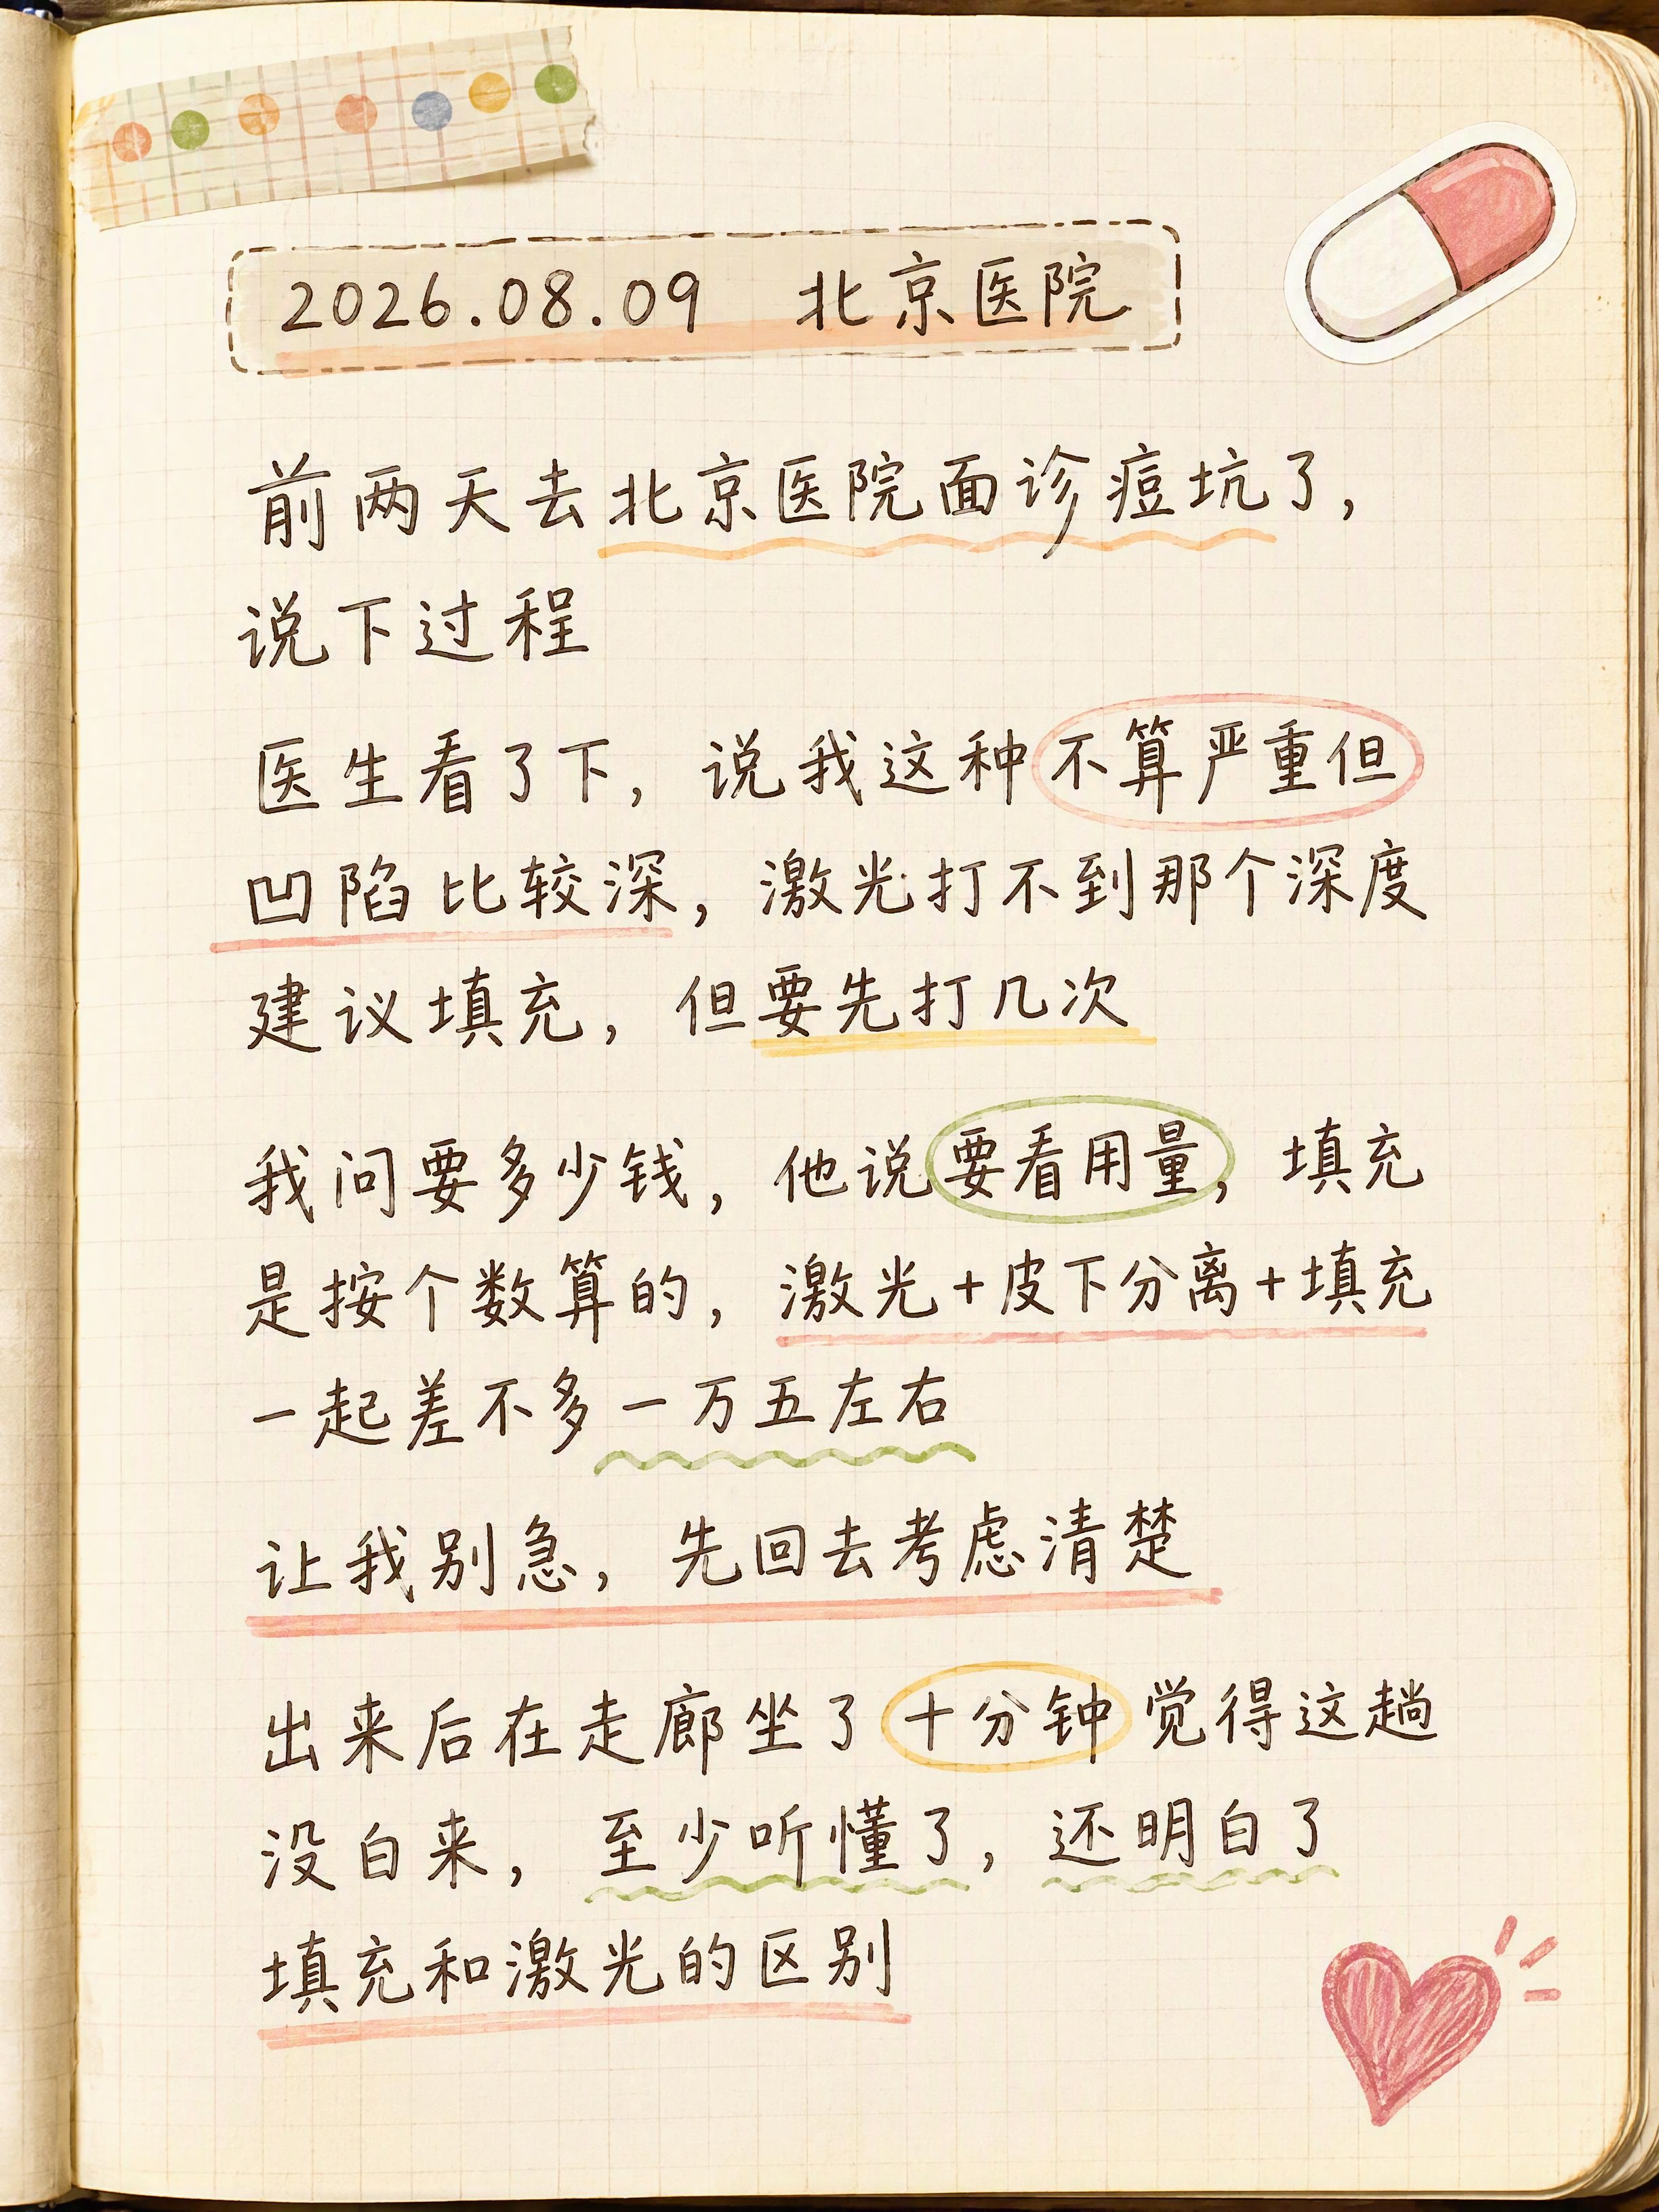 2026.08.09 北京医院
前两天去北京医院面诊痘坑了,
说下过程
医生看了下, 说我这种不算严重但
凹陷比较深, 激光打不到那个深度
建议填充, 但要先打几次
我问要多少钱, 他说要看用量, 填充
是按个数算的, 激光+皮下分离+填充
一起差不多一万五左右
让我别急, 先回去考虑清楚
出来后在走廊坐了十分钟觉得这趟
没白来, 至少听懂了, 还明白了
填充和激光的区别